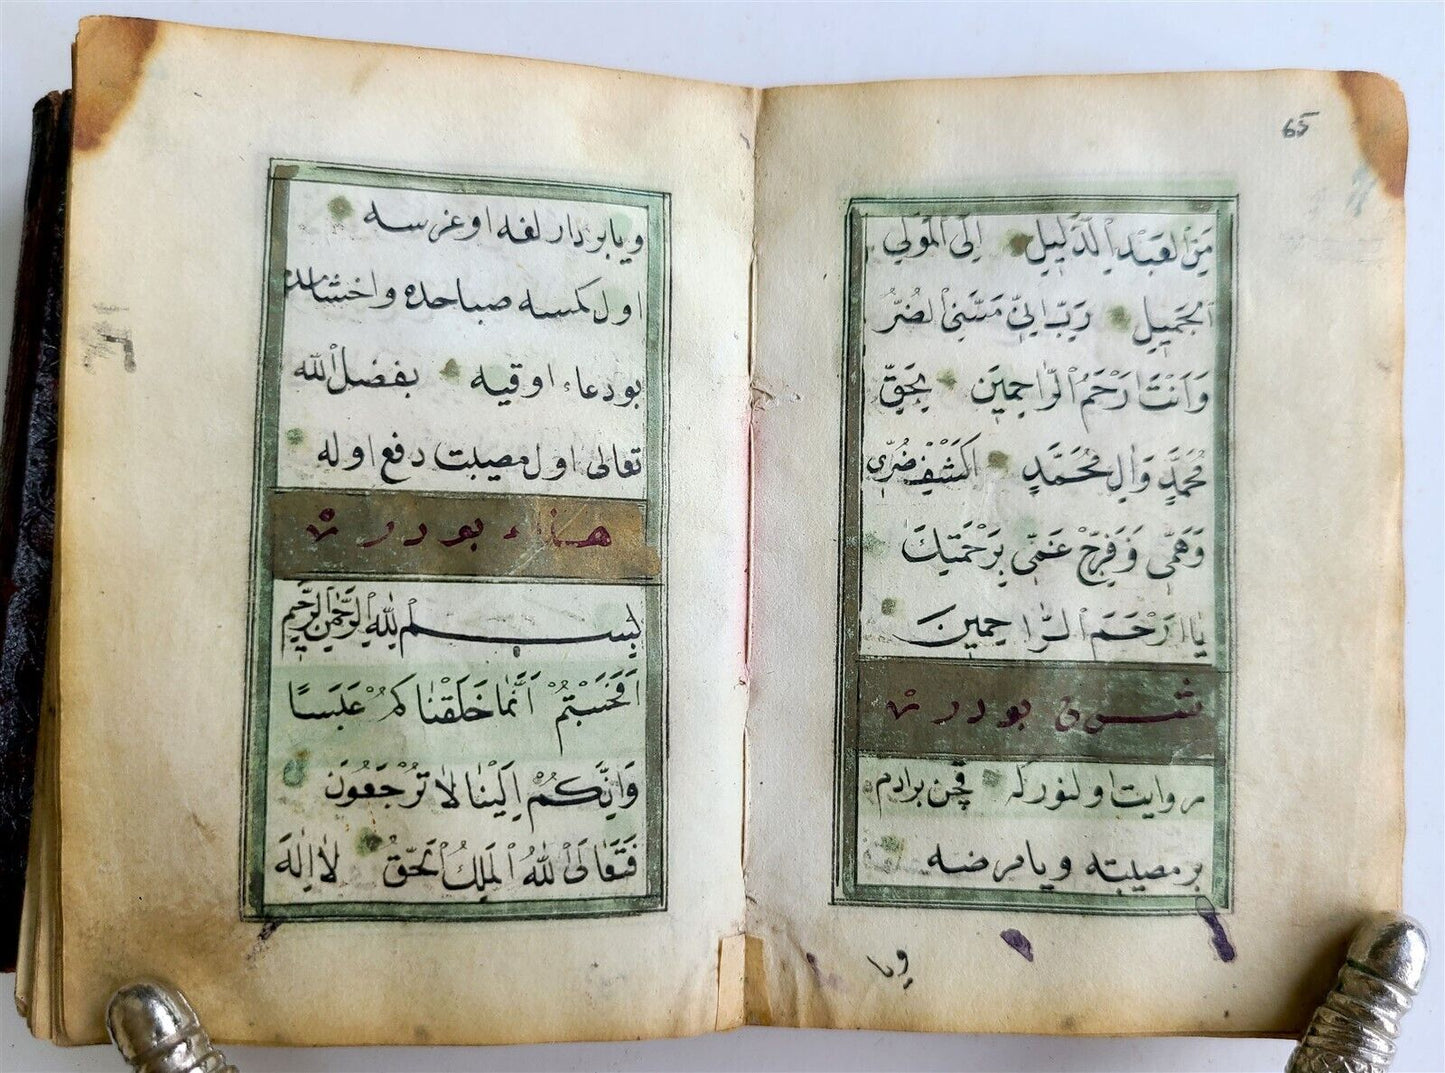 65
مَنِ الْعَبْدِ الذَّلِيلِ اِلَى الْمَوْلَى
الْجَمِيلِ رَبِّ اِنِّى مَسَّنِىَ الضُّرُّ
وَاَنْتَ اَرْحَمُ الرَّاحِمِينَ بِحَقِّ
مُحَمَّدٍ وَاٰلِ مُحَمَّدٍ اَكْشِفْ ضُرِّى
وَهَمِّى وَفَرِّجْ غَمِّى بِرَحْمَتِكَ
يَا اَرْحَمَ الرَّاحِمِينَ
شرحى بودر
روايت اولنور كه قچن بر ادم
بر مصيبته ويا مرضه
ويا
ويا بر دار لغه اوغرسه
اول كمسه صباحده واخشامده
بو دعاء اوقيه بفضل الله
تعالى اول مصيبت دفع اوله
هذاء بودر
بِسْمِ اللّٰهِ الرَّحْمٰنِ الرَّحِيمِ
اَفَحَسِبْتُمْ اَنَّمَا خَلَقْنَاكُمْ عَبَسًا
وَاَنَّكُمْ اِلَيْنَا لَا تُرْجَعُونَ
فَتَعَالَى اللّٰهُ الْمَلِكُ الْحَقُّ لَا اِلٰهَ